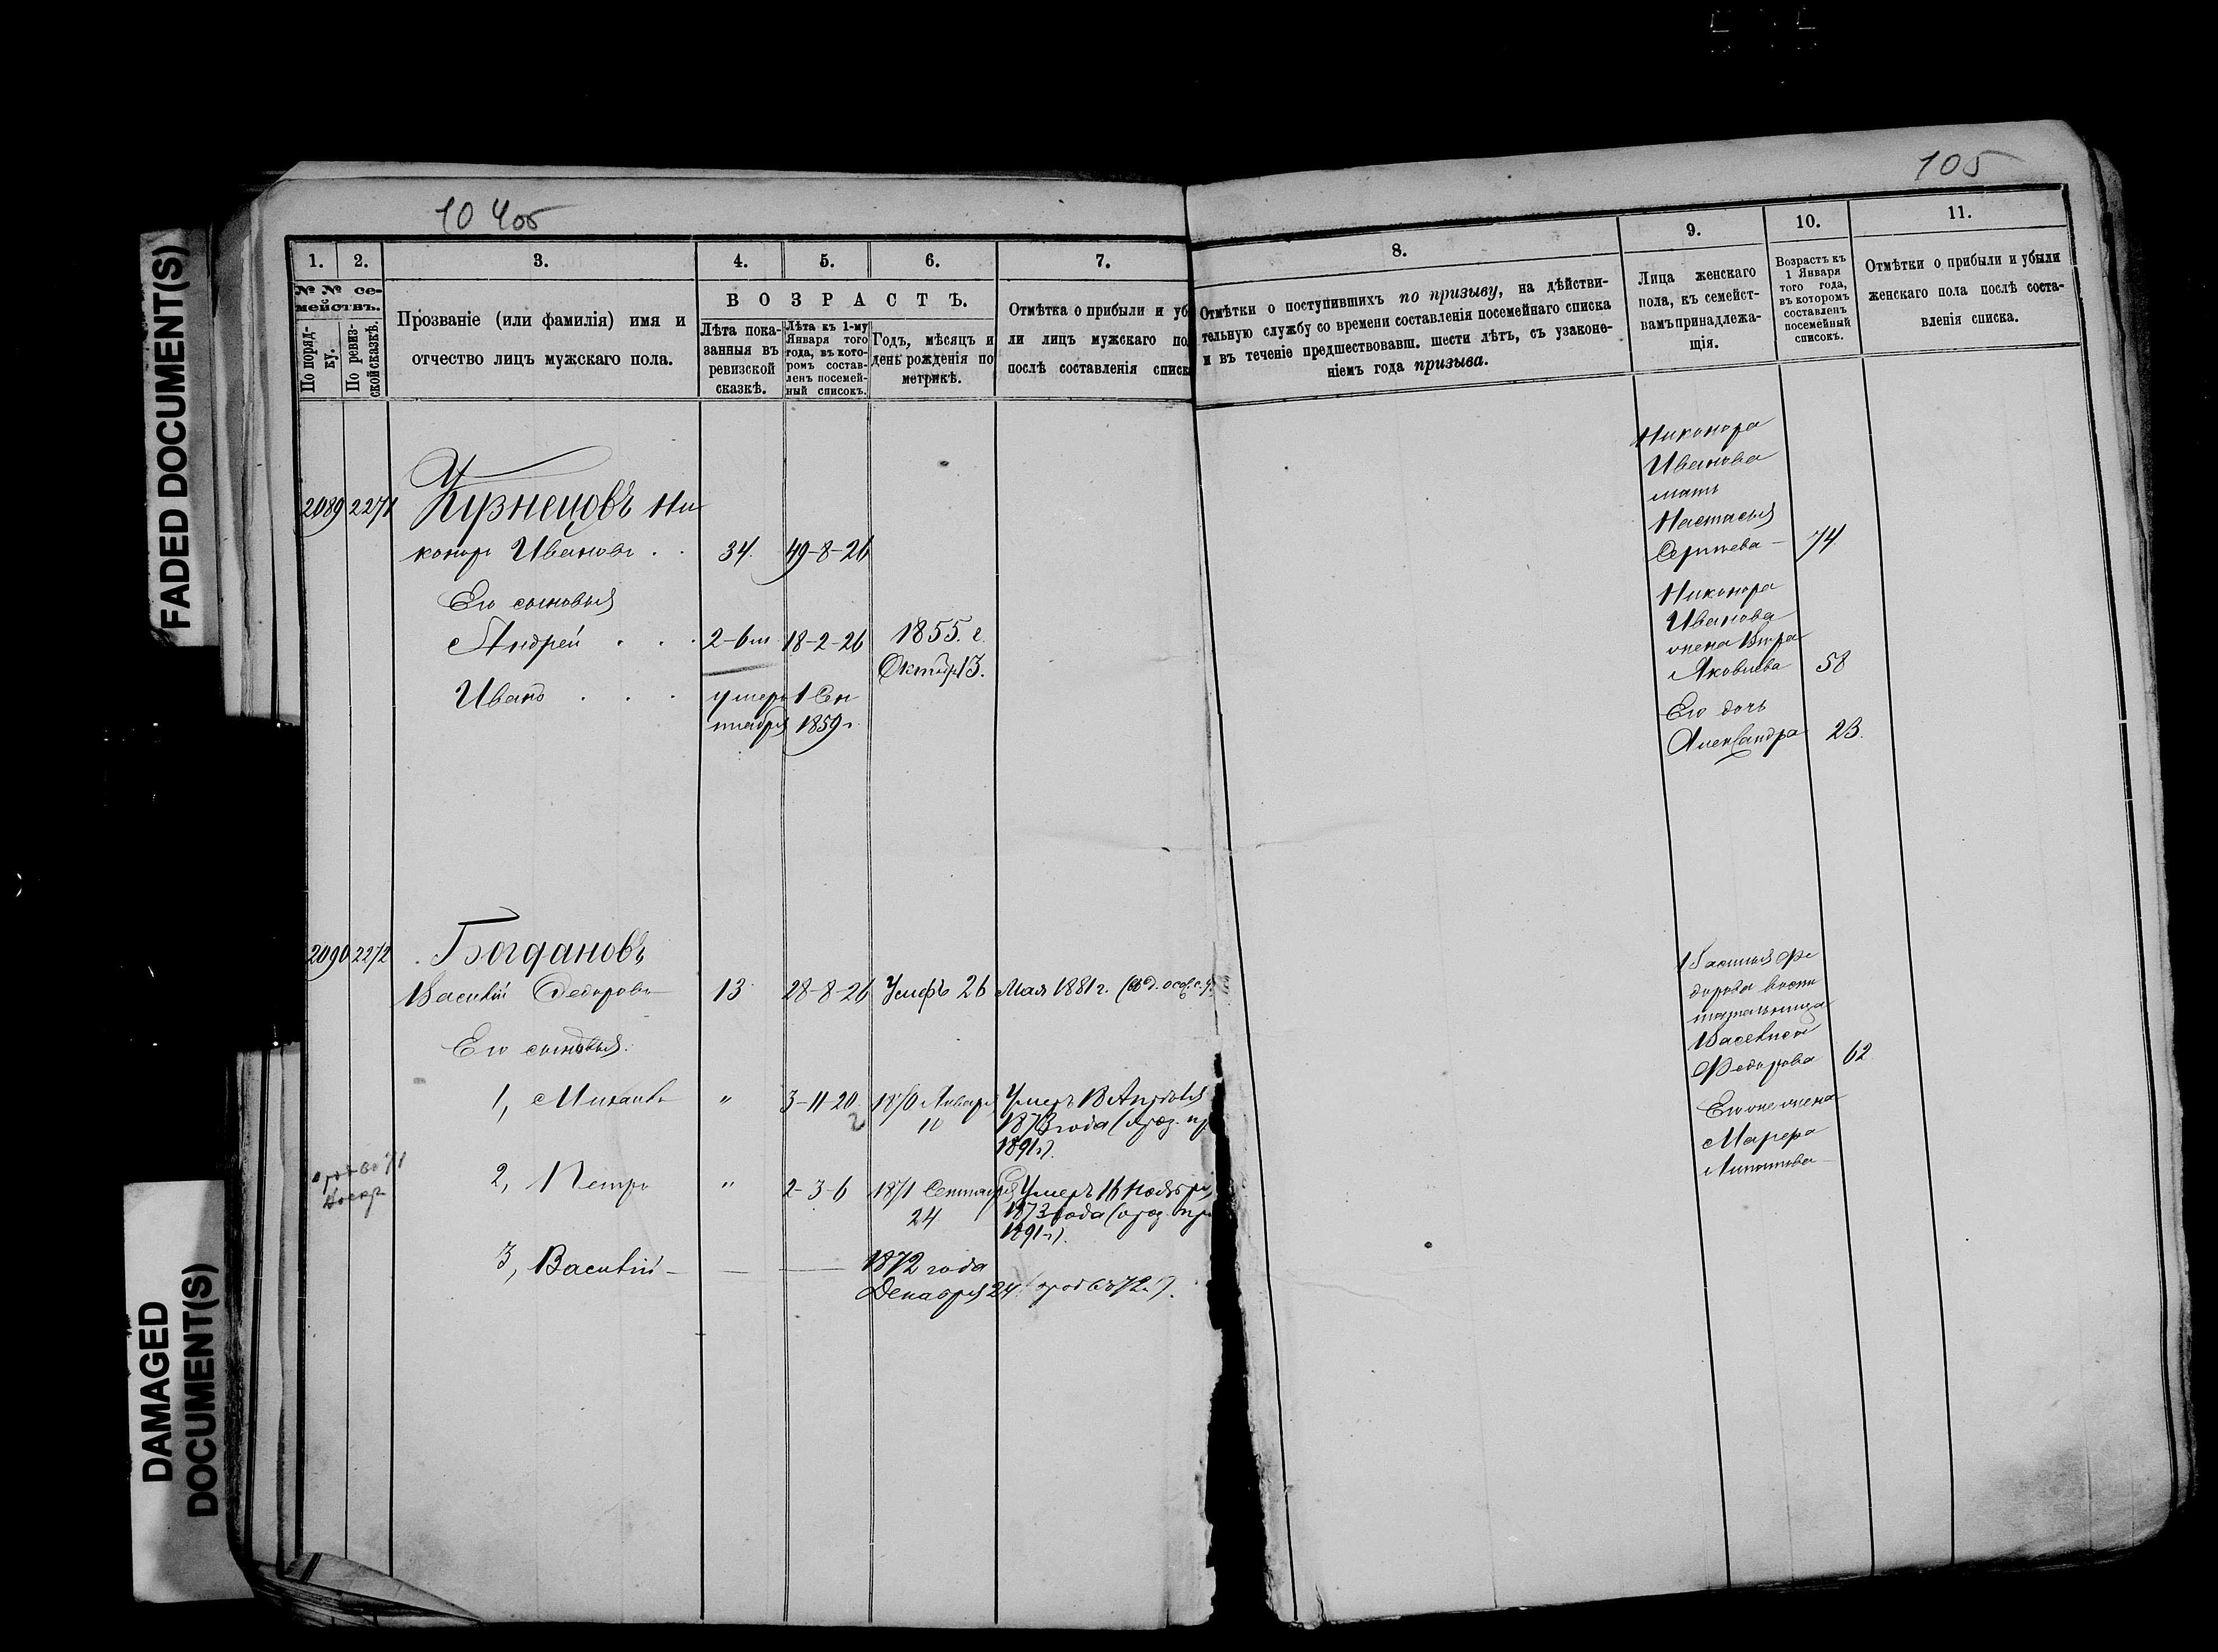 FADED DOCUMENT(S)
DAMAGED
DOCUMENT(S)
105
1.
2.
3.
4.
5.
6.
7.
№ № се-
мействъ.
По поряд-
ку.
По ревиз-
ской сказкѣ.
Прозваніе (или фамилія) имя и
отчество лицъ мужскаго пола.
ВОЗРАСТЪ.
Лѣта пока-
занныя въ
ревизской
сказкѣ.
Лѣта къ 1-му
Января того
года, въ кото-
ромъ состав-
ленъ посемей-
ный списокъ.
Годъ, мѣсяцъ и
день рожденія по
метрикѣ.
Отмѣтка о прибыли и уб
ли лицъ мужскаго по
послѣ составленія списк
2089 2271 Кузнецовъ Ни
каноръ Ивановъ 34. 49-8-26
Его сыновья
Андрей 2-6 м 18-2-26 1855. г.
Октяб. 13.
Иванъ умеръ 1 Сен
тября 1859 г.
2090 2272 Богдановъ
Василій Федоровъ 13 28-8-26 Умеръ 26 Мая 1881 г.
Его сыновья:
1, Михаилъ " 3-11-20 1870 Января Умеръ
10 1873 года
1891 г).
2, Петръ " 2-3-6 1871 Сентября Умеръ 16 Ноября
24 1873 года
1891 г).
3, Василій 1872 года
Декабря 24
8.
9.
10.
11.
Отмѣтки о поступившихъ по призыву, на дѣйстви-
тельную службу со времени составленія посемейнаго списка
и въ теченіе предшествовавш. шести лѣтъ, съ узаконе-
ніемъ года призыва.
Лица женскаго
пола, къ семейст-
вамъ принадлежа-
щія.
Возрастъ къ
1 Января
того года,
въ которомъ
составленъ
посемейный
списокъ.
Отмѣтки о прибыли и убыли
женскаго пола послѣ соста-
вленія списка.
Никанора
Иванова
мать
Настасья
Сергѣева 74
Никанора
Иванова
жена
Яковлева 58
Его дочь
Александра 23.
Василья Фе
дорова воспи
тательница
Федорова 62
Его жена
Марѳа